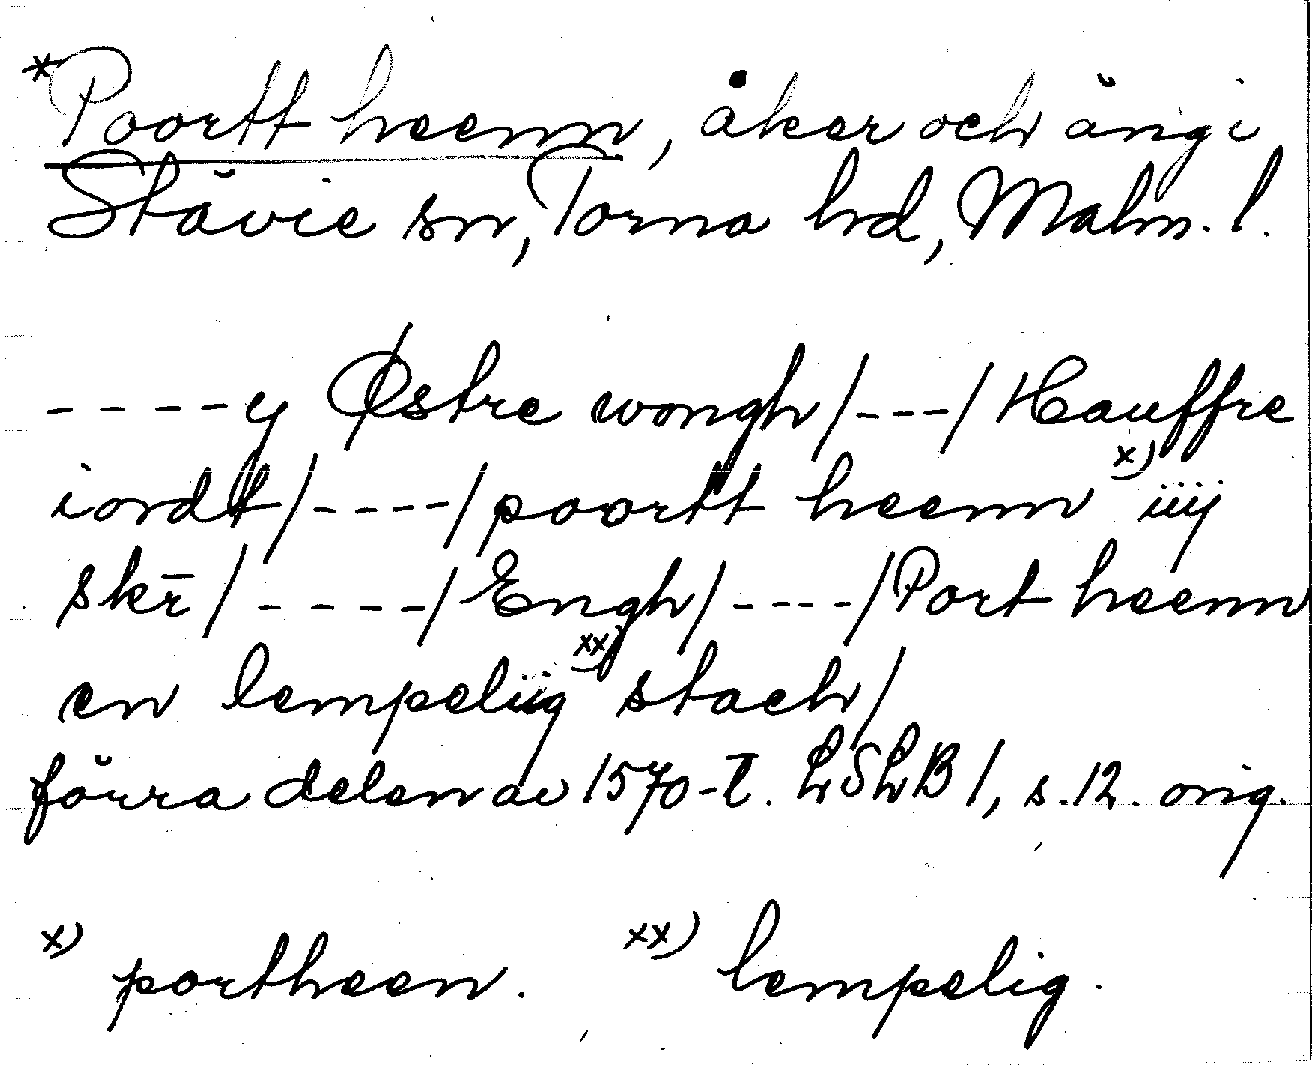 *Poortt heenn, åker och äng i
Stävie sn, Torna hd, Malm. l.
----y Østre wongh/---/Hauffre
iordt/----/poortt heenn x) iiij
skr̄/----/Engh/----/Port heenn
en lempeliig xx) stach/
förra delen av 1570-t̄. LSLB 1, s. 12. orig.
x) portheen. xx) lempelig.